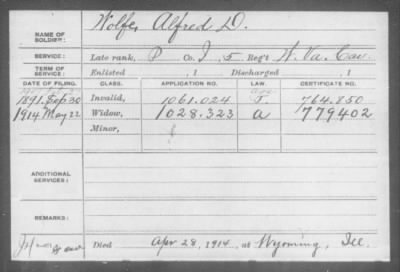 NAME OF SOLDIER: Wolfe, Alfred D.
SERVICE: Late rank, P Co. I, 5 Reg't W. Va. Cav.
TERM OF SERVICE: Enlisted , 1 Discharged , 1
DATE OF FILING. CLASS. APPLICATION NO. LAW. CERTIFICATE NO.
1891. Sep 30 Invalid, 1061.024 J. 764.850
1914 May 22 Widow, 1028.323 a 779402
Minor,
ADDITIONAL SERVICES:
REMARKS:
Died Apr 28, 1914, at Wyoming, Ill.